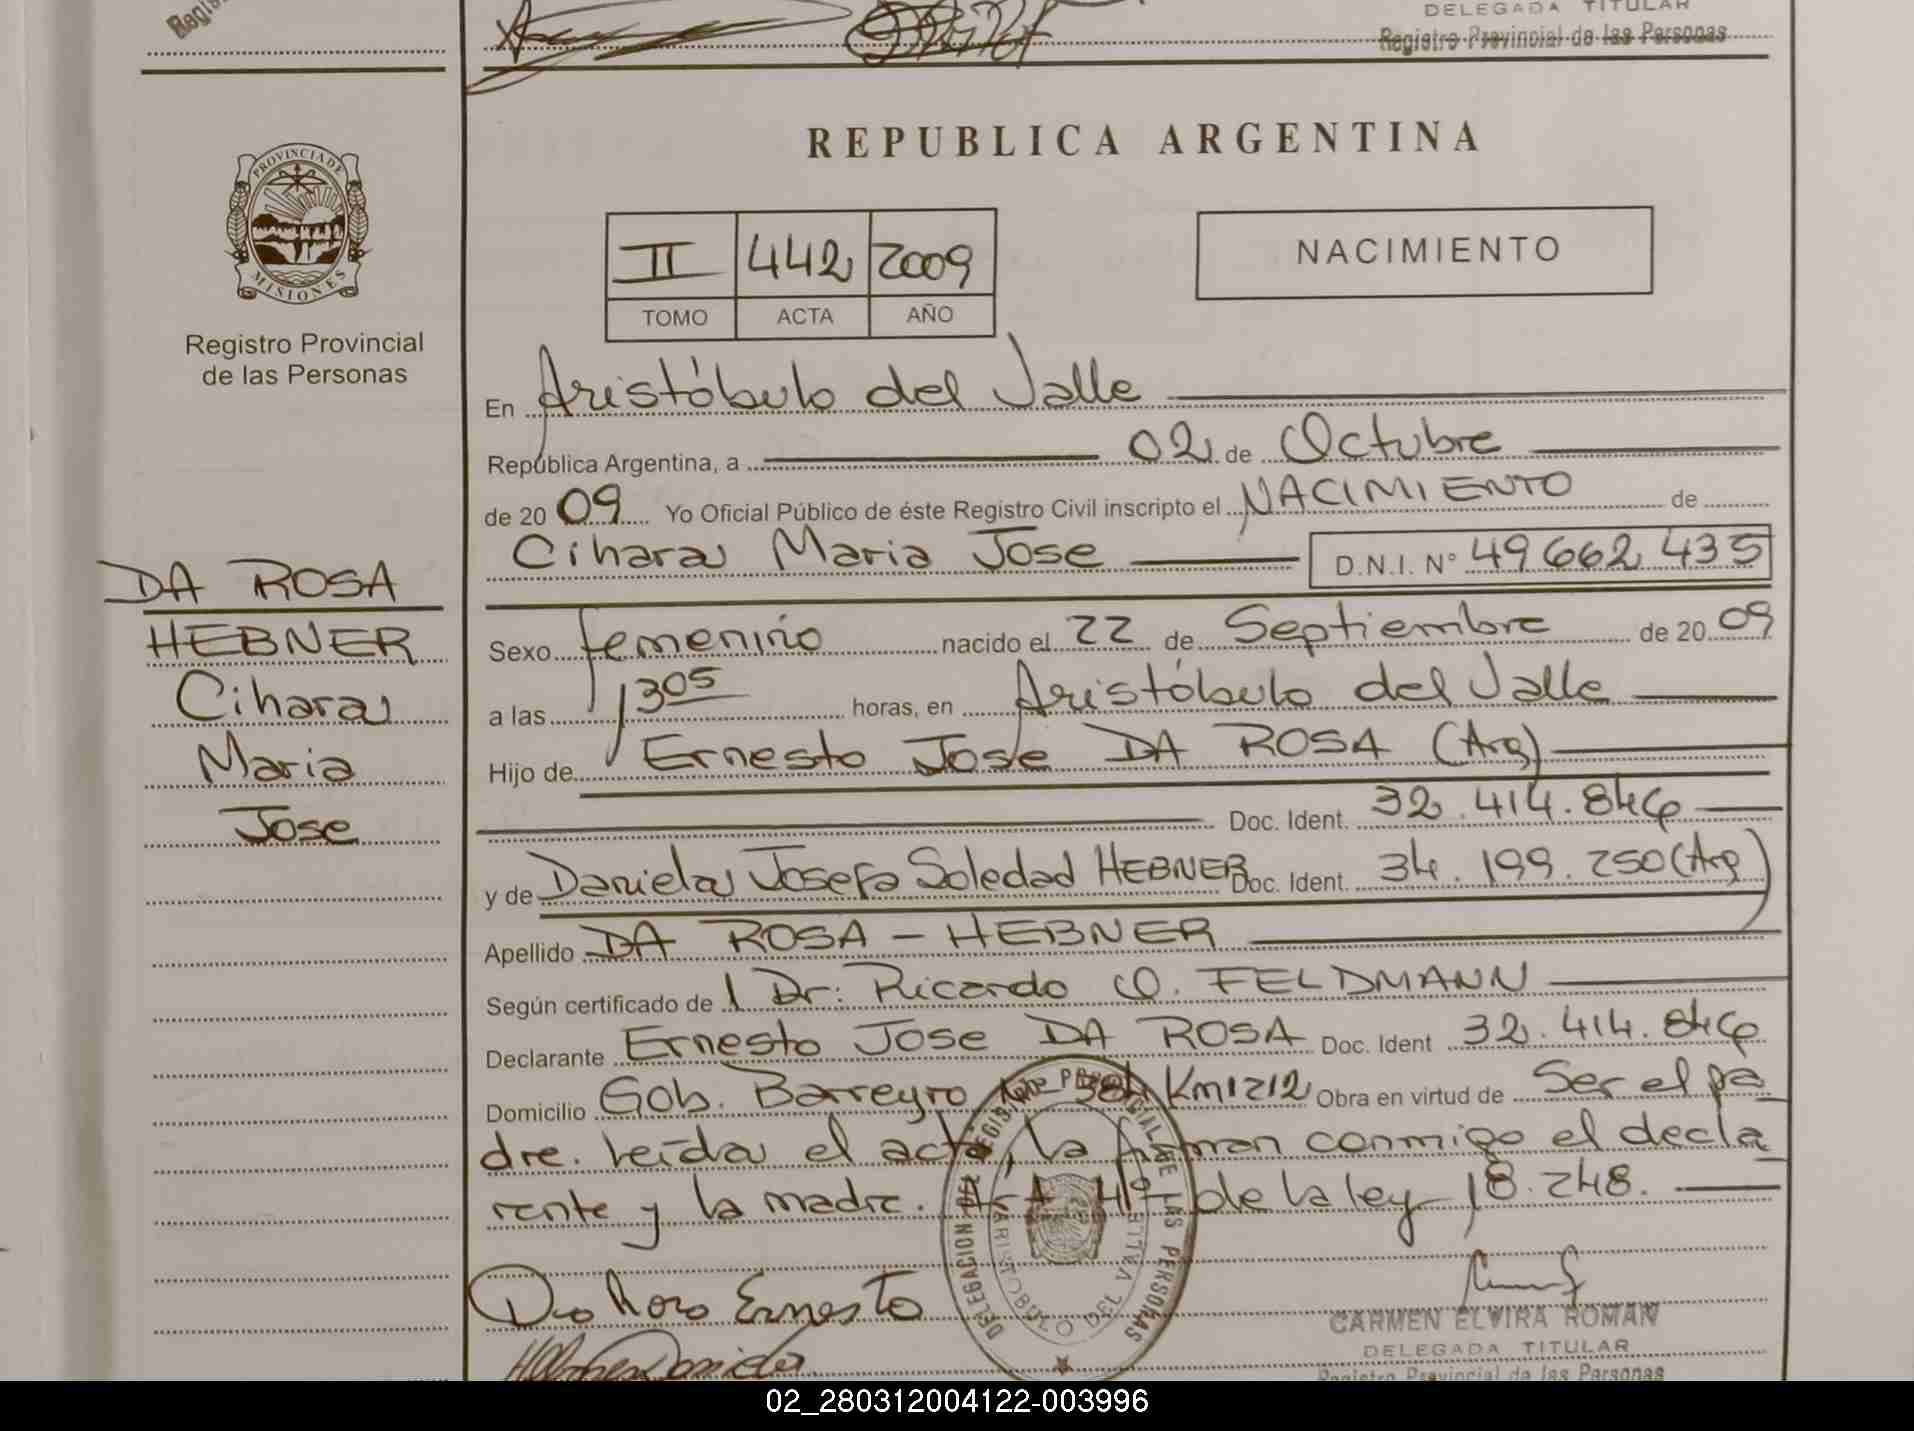 DELEGADA TITULAR
Registro Provincial de las Personas
REPUBLICA ARGENTINA
PROVINCIA DE
MISIONES
Registro Provincial
de las Personas
II 442 2009
TOMO ACTA AÑO
NACIMIENTO
En Aristóbulo del Valle
República Argentina, a 02 de Octubre
de 20 09 Yo Oficial Público de éste Registro Civil inscripto el NACIMIENTO de
Cihara Maria Jose D.N.I. Nº 49 662 435
DA ROSA
HEBNER
Cihara
Maria
Jose
Sexo femenino nacido el 22 de Septiembre de 20 09
a las 1305 horas, en Aristóbulo del Valle
Hijo de Ernesto Jose DA ROSA (Arg)
Doc. Ident. 32.414.846
y de Daniela Josefa Soledad HEBNER Doc. Ident. 34.199.250 (Arg)
Apellido DA ROSA - HEBNER
Según certificado de Dr: Ricardo O. FELDMANN
Declarante Ernesto Jose DA ROSA Doc. Ident 32.414.846
Domicilio Gob. Barreyro Nº 384 Km1212 Obra en virtud de Ser el pa
dre. leída el acta, la firman conmigo el decla
rante y la madre. Art 4º de la ley 18.248.
Ernesto
DELEGACION DEL REGISTRO PROVINCIAL DE LAS PERSONAS
ARISTOBULO DEL VALLE
CARMEN ELVIRA ROMAN
DELEGADA TITULAR
Registro Provincial de las Personas
02_280312004122-003996